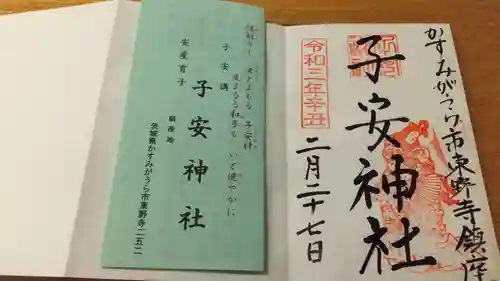 かすみがうら市東野寺鎮座
子安神社
令和三年辛丑
二月二十七日
子安講
安産育子
子安神社
鎮座地
茨城県かすみがうら市東野寺二五二